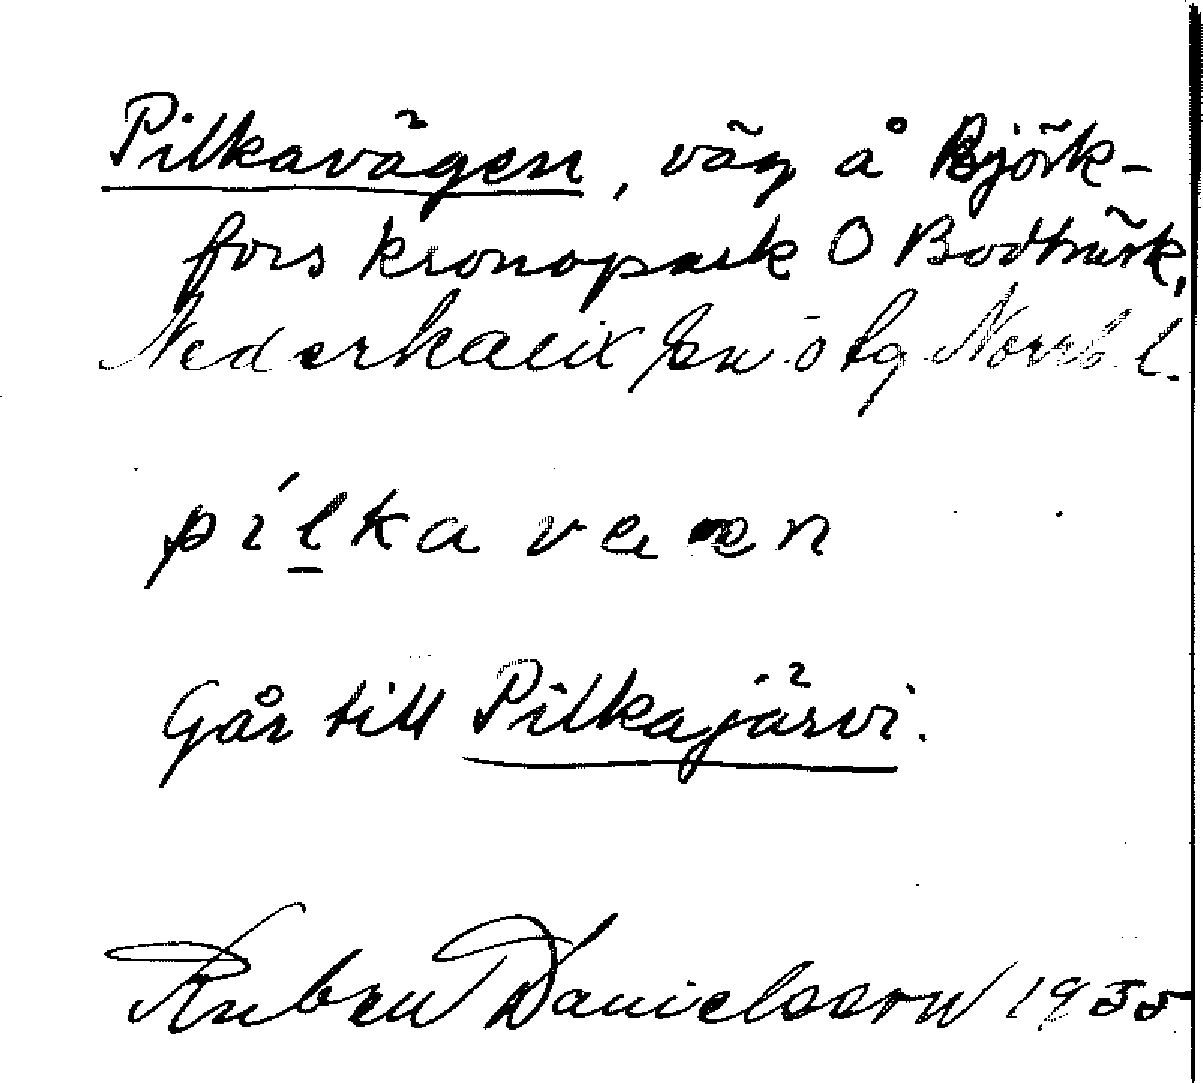 Pilkavägen, väg å Björk-
fors kronopark O Bodträsk,
Nederkalix sn o tg Norrb. l.
pílka ve en
Går till Pilkajärvi.
Ruben Danielsson 1935